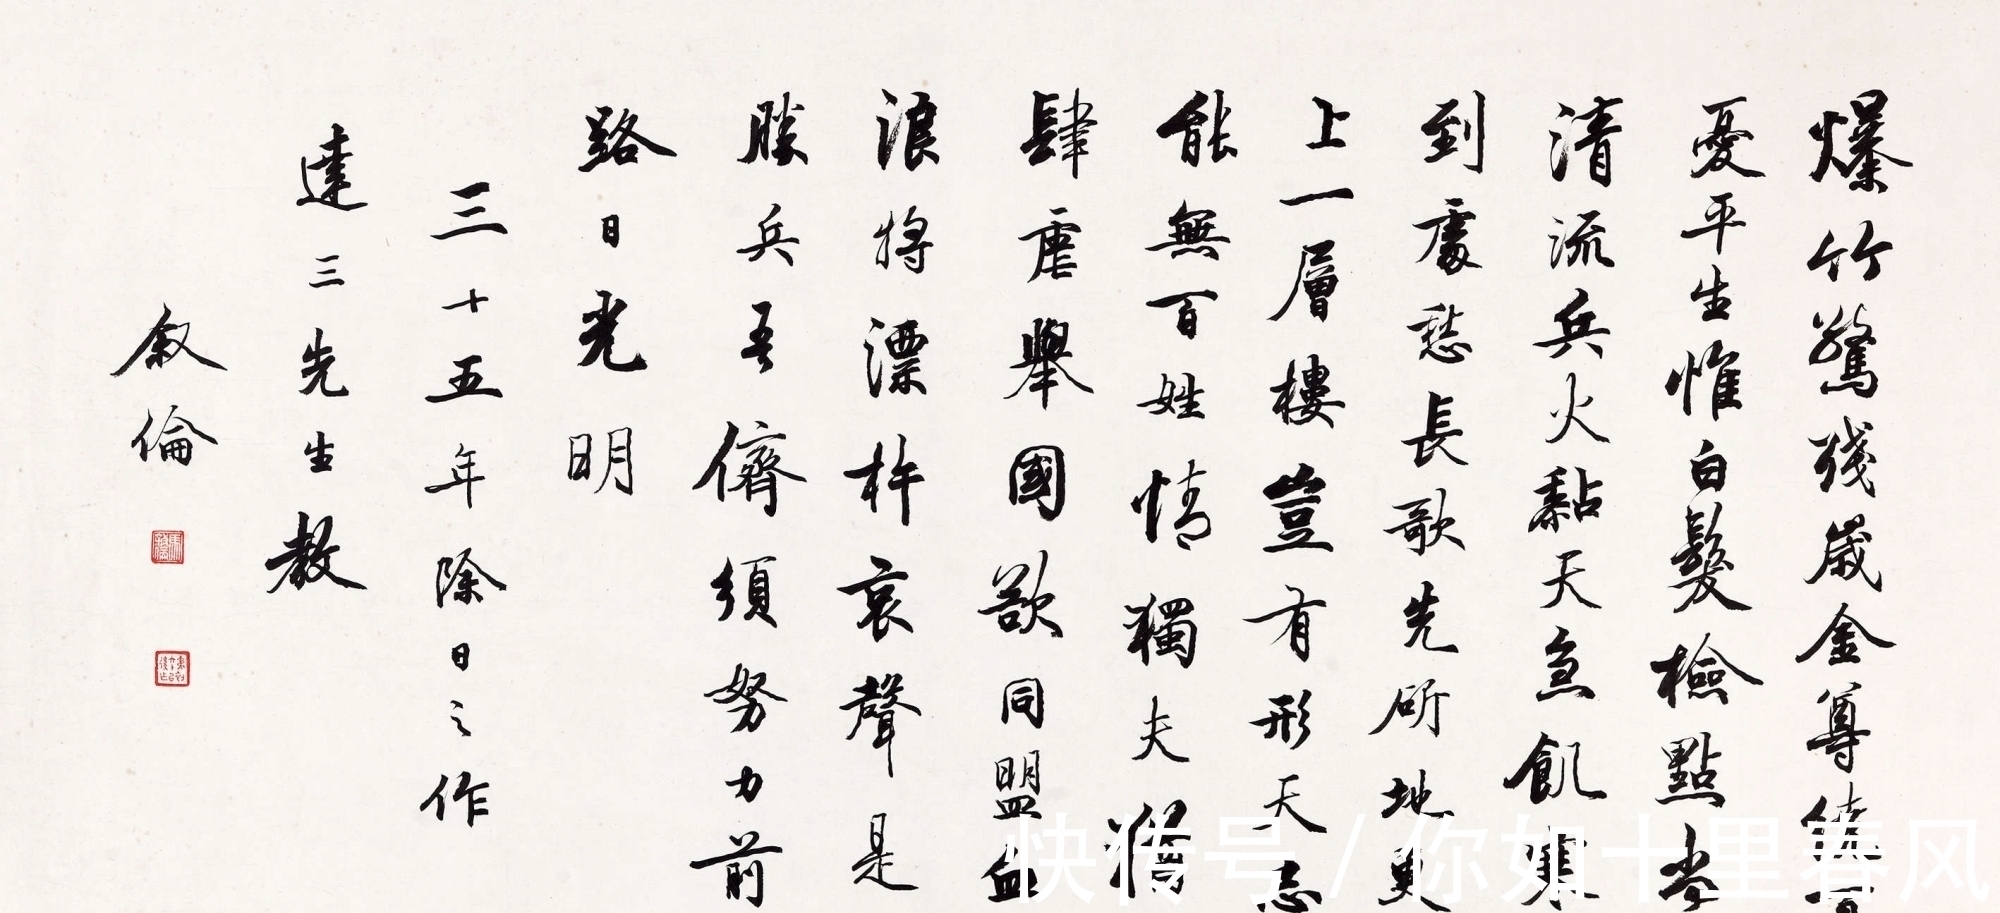 爆竹驚殘歲金尊
憂平生惟白髮檢點
清流兵火黏天急飢寒
到處愁長歌先斫地更
上一層樓豈有形天忌
能無百姓情獨夫猶
肆虐舉國欲同盟血
浪將漂杵哀聲是
勝兵吾儕須努力前
路日光明
三十五年除日之作
達三先生教
叙倫
快传号/你如十里春风